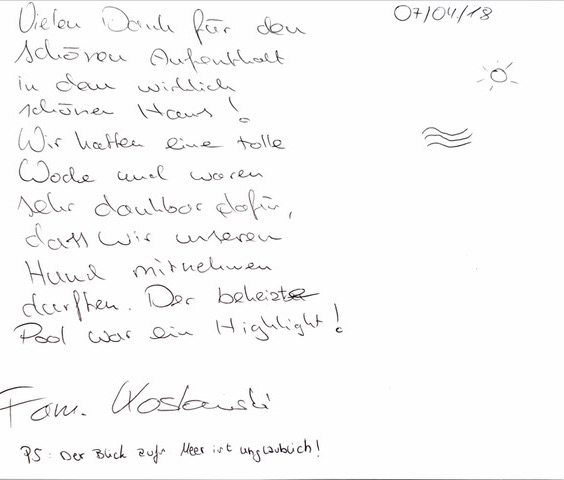 07/04/18
Vielen Dank für den
schönen Aufenthalt
in dem wirklich
schönen Haus!
Wir hatten eine tolle
Woche und waren
sehr dankbar dafür,
dass wir unseren
Hund mitnehmen
durften. Der beheizte
Pool war ein Highlight!
Fam. Koslowski
PS: Der Blick aufs Meer ist unglaublich!